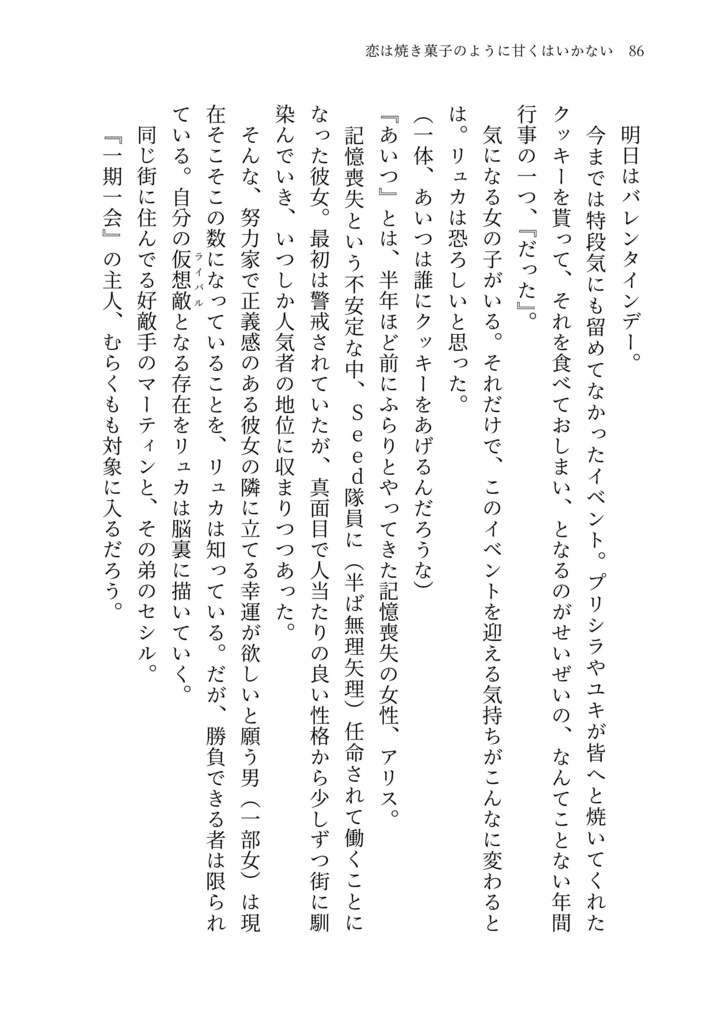 恋は焼き菓子のように甘くはいかない 86
明日はバレンタインデー。
今までは特段気にも留めてなかったイベント。プリシラやユキが皆へと焼いてくれた
クッキーを貰って、それを食べておしまい、となるのがせいぜいの、なんてことない年間
行事の一つ、『だった』。
気になる女の子がいる。それだけで、このイベントを迎える気持ちがこんなに変わると
は。リュカは恐ろしいと思った。
(一体、あいつは誰にクッキーをあげるんだろうな)
『あいつ』とは、半年ほど前にふらりとやってきた記憶喪失の女性、アリス。
記憶喪失という不安定な中、Seed隊員に(半ば無理矢理)任命されて働くことに
なった彼女。最初は警戒されていたが、真面目で人当たりの良い性格から少しずつ街に馴
染んでいき、いつしか人気者の地位に収まりつつあった。
そんな、努力家で正義感のある彼女の隣に立てる幸運が欲しいと願う男(一部女)は現
在そこそこの数になっていることを、リュカは知っている。だが、勝負できる者は限られ
ている。自分の仮想敵ライバルとなる存在をリュカは脳裏に描いていく。
同じ街に住んでる好敵手のマーティンと、その弟のセシル。
『一期一会』の主人、むらくもも対象に入るだろう。